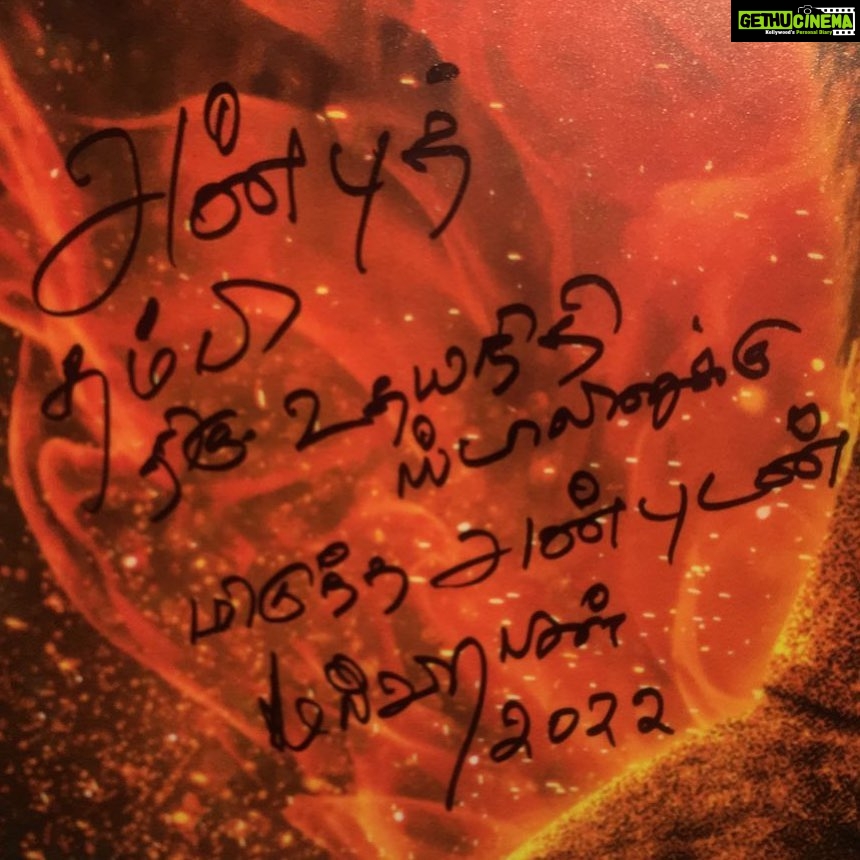 GETHUCINEMA
Kollywood's Personal Diary
அன்புத்
தம்பி
திரு உதயநிதி
ஸ்டாலினுக்கு
மிகுந்த அன்புடன்
2022